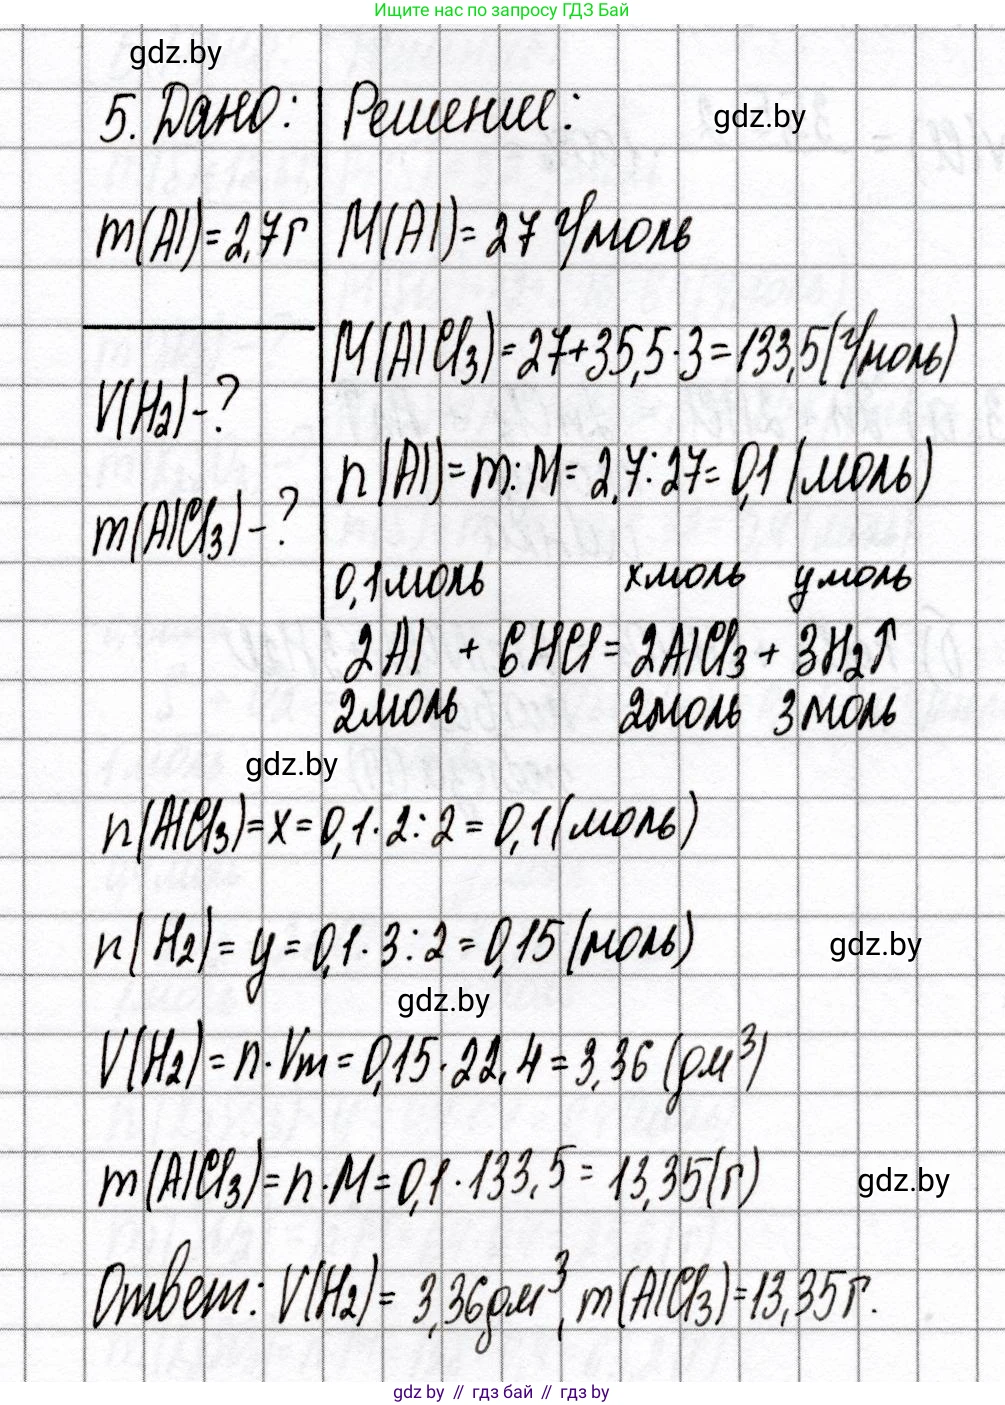 Ищите нас по запросу ГДЗ Бай
gdz.by
5. Дано:
Решение:
gdz.by
m(Al)=2,7г
M(Al)=27 г/моль
M(AlCl₃)=27+35,5·3=133,5(г/моль)
V(H₂)-?
n(Al)=m:M=2,7:27=0,1(моль)
m(AlCl₃)-?
0,1моль хмоль умоль
2Al + 6HCl=2AlCl₃+3H₂↑
2моль 2моль 3моль
gdz.by
n(AlCl₃)=x=0,1·2:2=0,1(моль)
n(H₂)=y=0,1·3:2=0,15(моль)
gdz.by
gdz.by
V(H₂)=n·Vm=0,15·22,4=3,36(дм³)
m(AlCl₃)=n·M=0,1·133,5=13,35(г)
gdz.by
Ответ: V(H₂)=3,36дм³, m(AlCl₃)=13,35г.
gdz by // гдз бай // гдз by